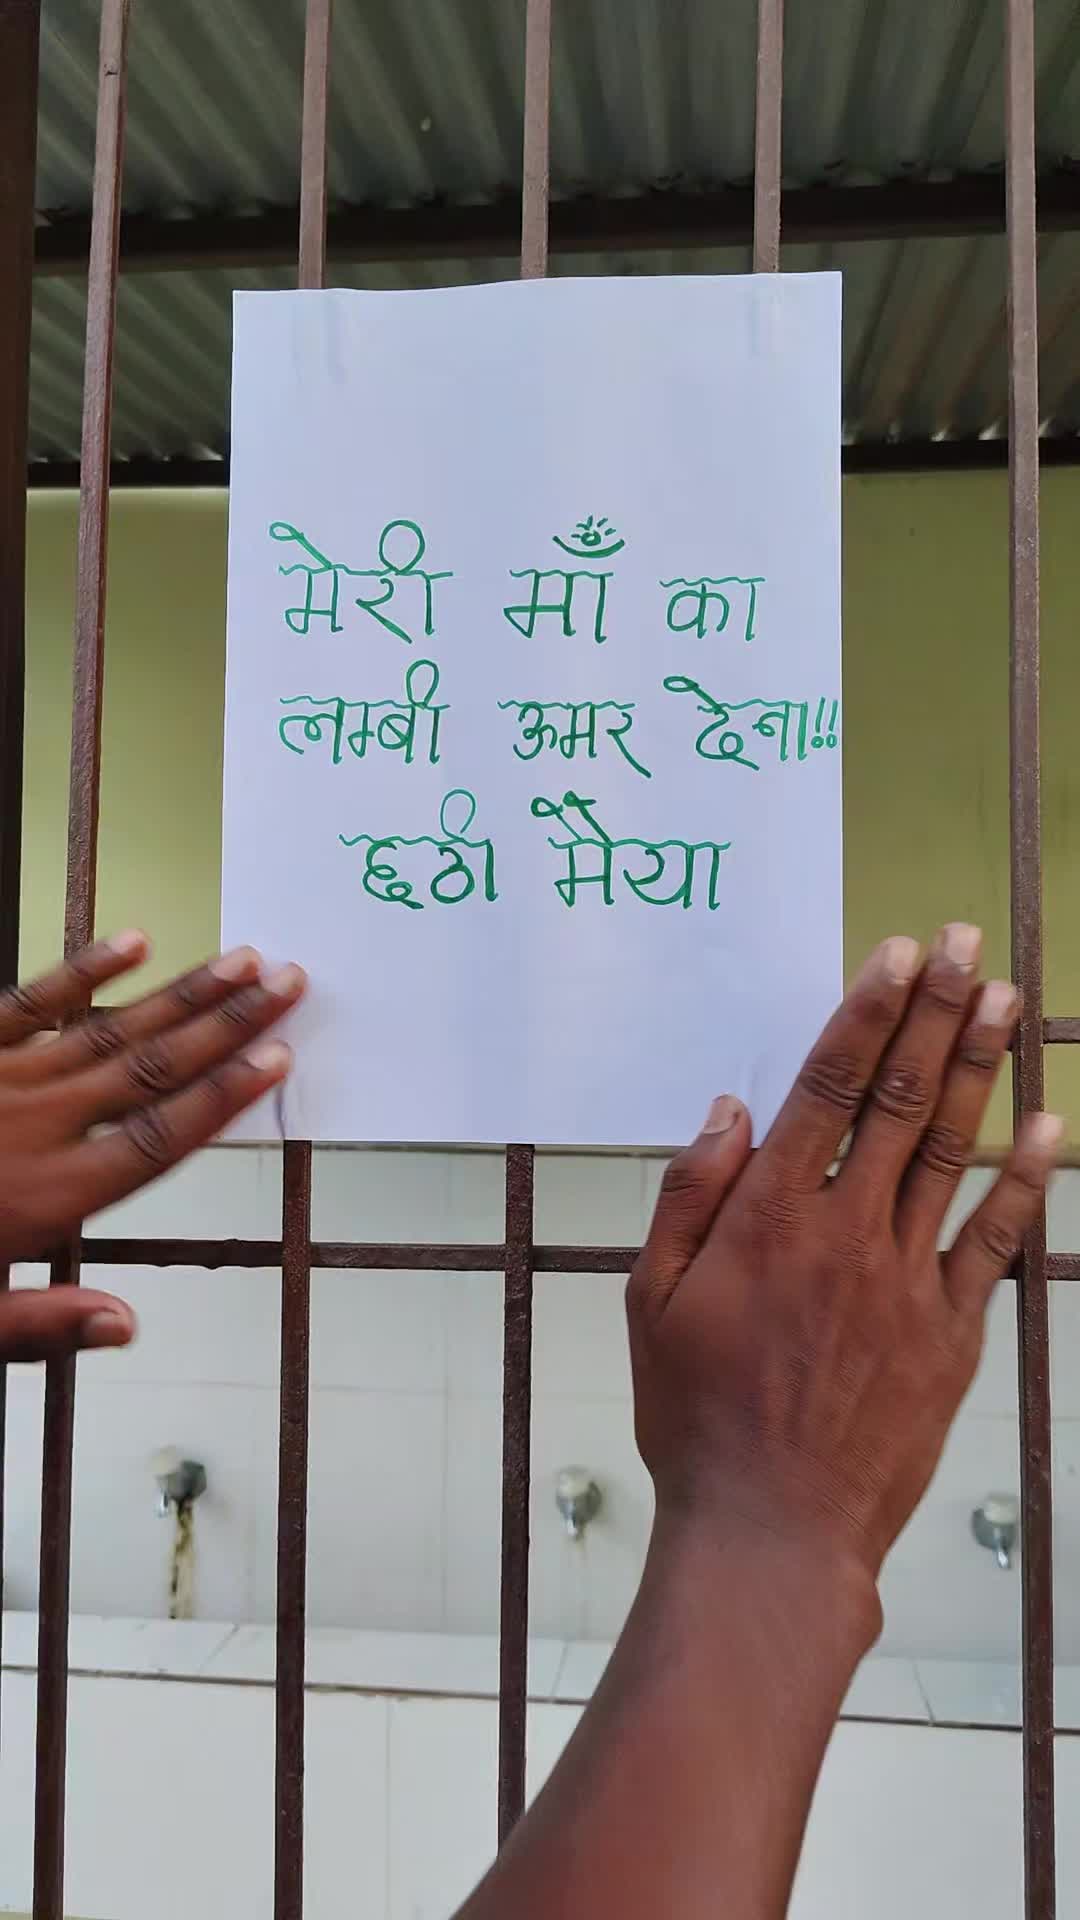 मेरी माँ का
लम्बी ऊमर देना!!
छठी मैया